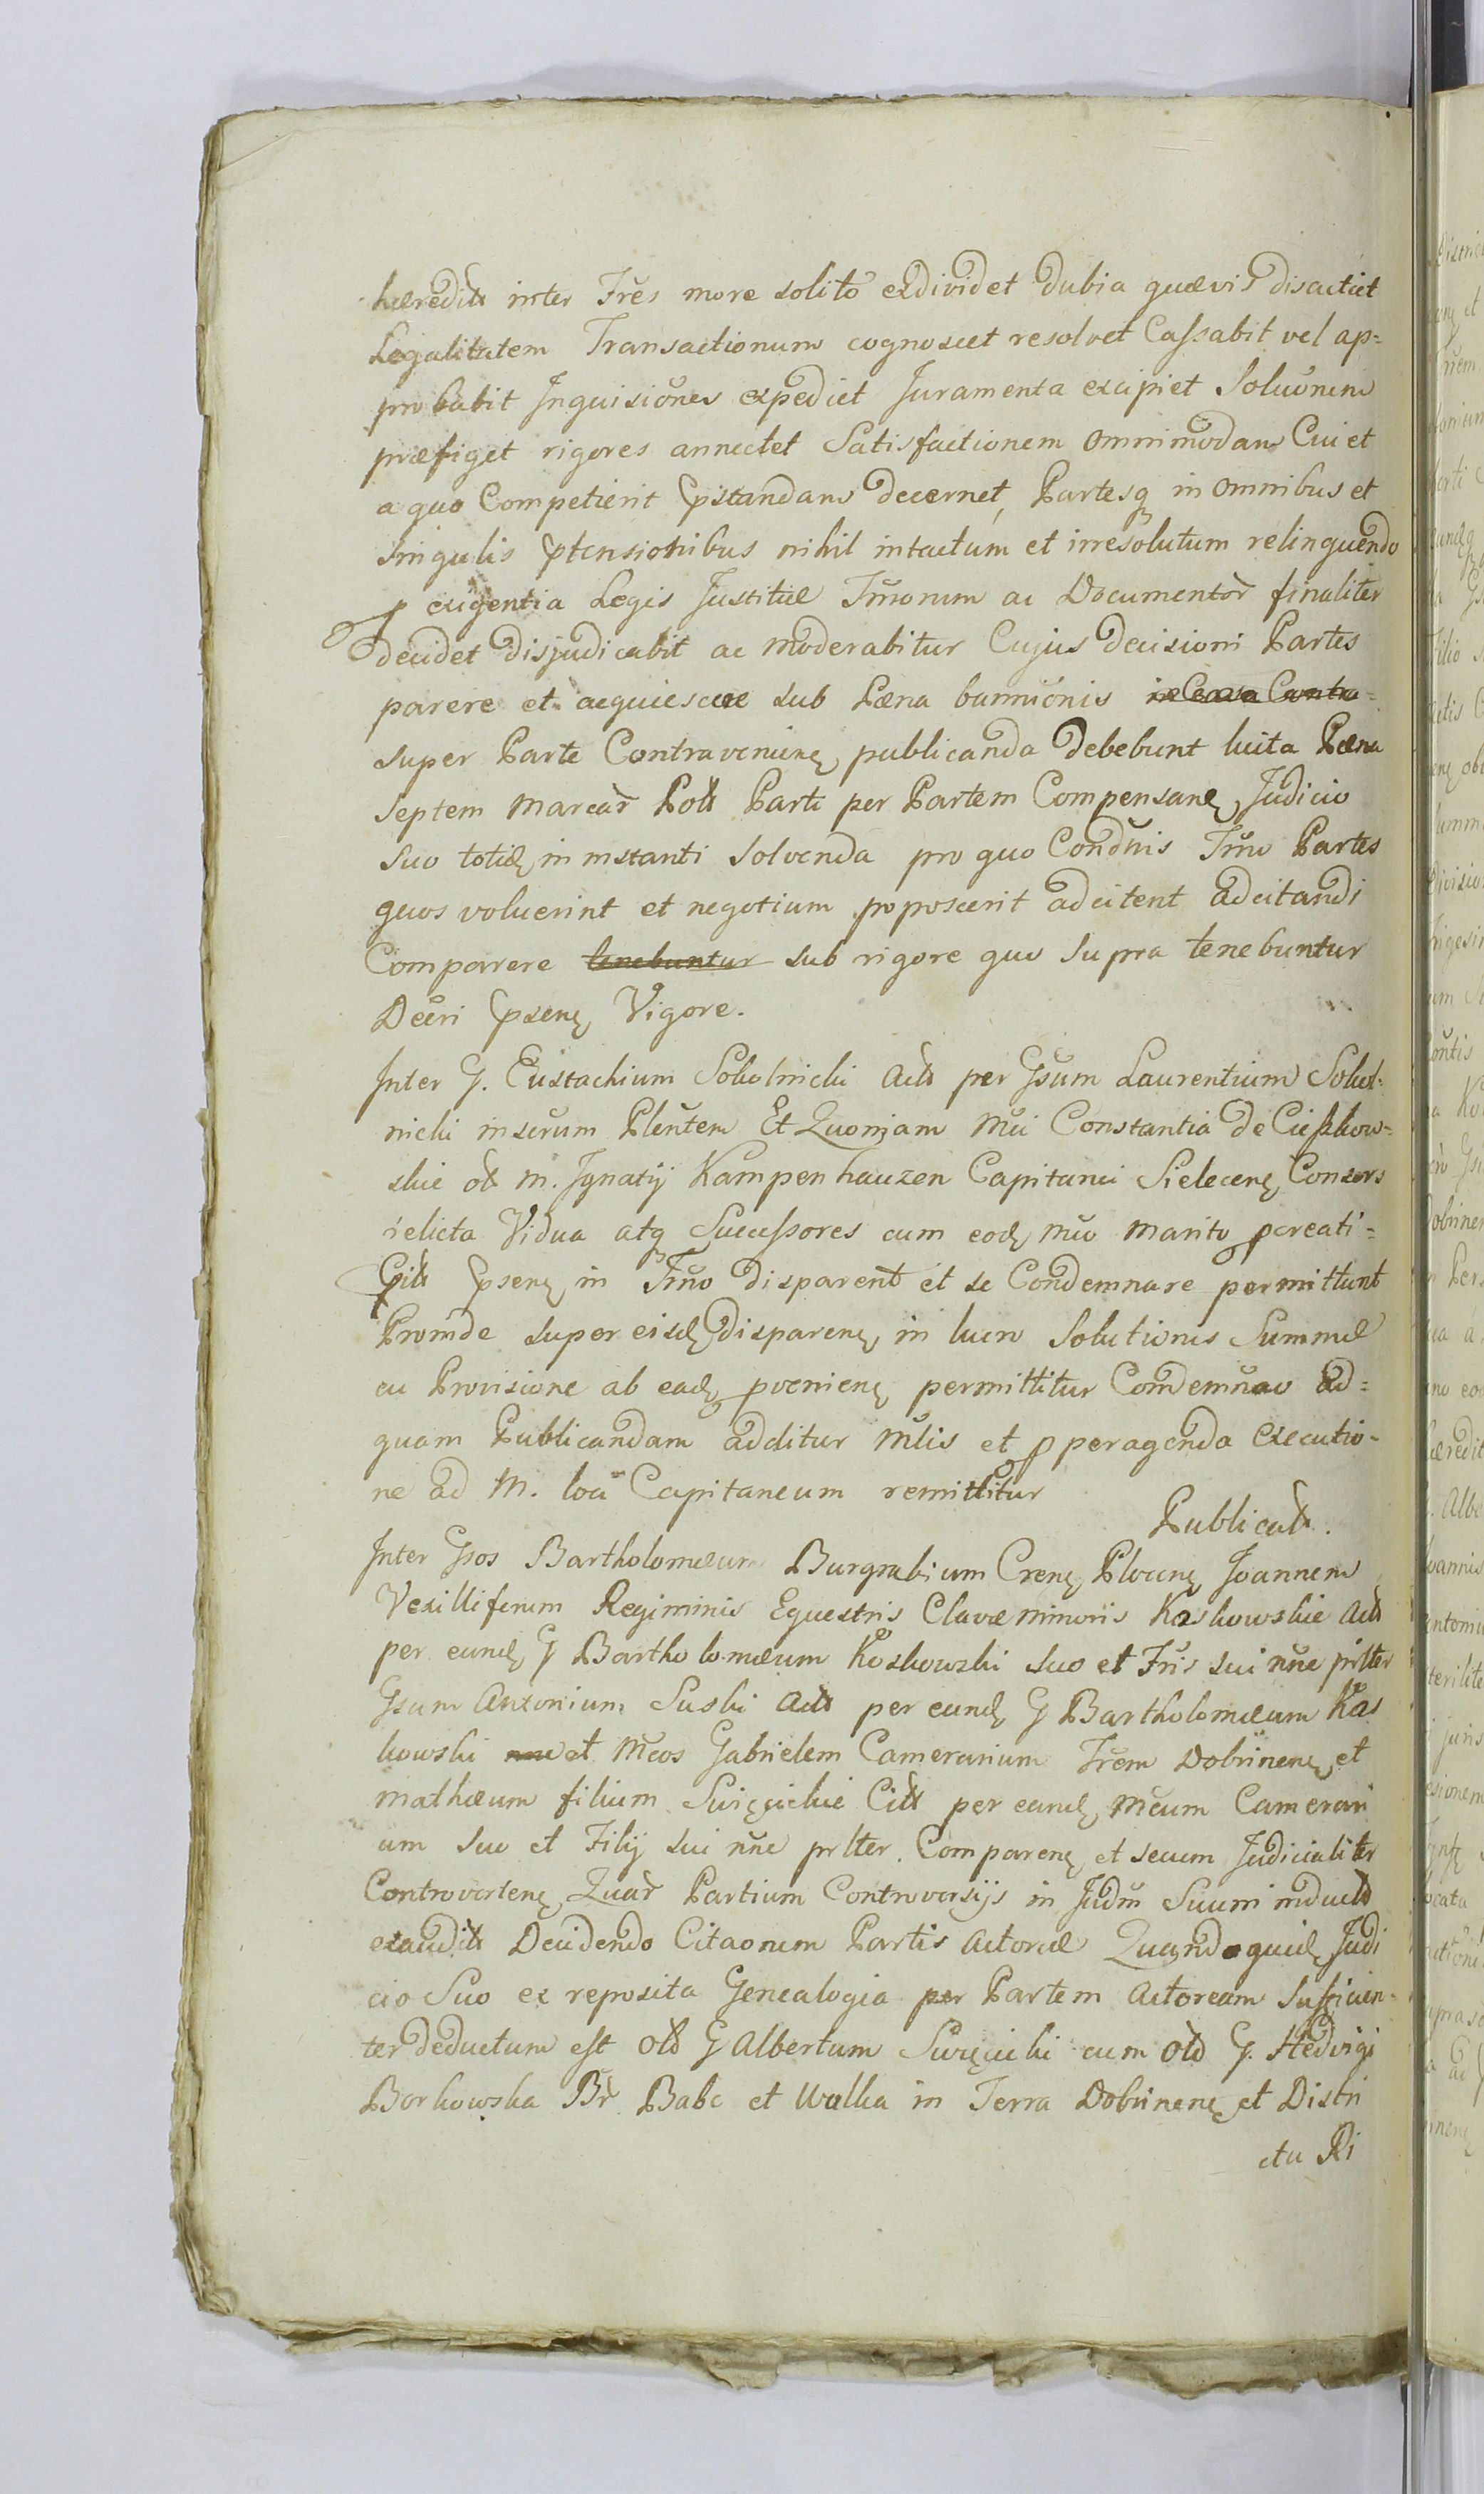 hæredit͠t inter Fr͠es more solito exdividet Dubia quævis disactiet
Legalitatem Transactionum cognoscet resolvet Cassabit vel ap=
probabit Inquisiõnes expediet Juramenta excipiet Soluõnem
præfiget rigores annectet Satisfactionem omnimodam Cui et
a quo Competierit p͠standam decernet, Partesq3 in omnibus et
singulis p͠tensionibus nihil intactum et irresolutum relinquendo
p exigentia Legis Justitiæ Tm͠orum ac Documentor͠ finaliter
decidet disjudicabit ac moderabitur Cujus decisioni Partes
parere et acquiescere sub Pæna banniõnis in Casu Contra=
super Parte Contravenienę publicanda debebunt luita Pæna
Septem Marcar͠ Pol͠l Parti per Partem Compensanę, Judicio
Suo totid͠ę in instanti solvenda pro quo Cond͠nis Tm͠o Partes
quos voluerint et negotium poposcerit adcitent adcitandi
Comparere tenebuntur sub rigore quo supra tenebuntur
Decri p͠senę Vigore.
Inter G. Eustachium Sokolnicki Act͠t per Gsum Laurentium Sokol=
nicki inserum Plen͠tem Et Quoniam M͠ci Constantia de Cieszkow=
skie ol͠t M. Ignatij Kampenhauzen Capitanei Sielecenę Consors
relicta Vidua atq3 Successores cum eodę m͠co marito pcreati=
Cit͠t p͠senę in Tm͠o disparent et se Condemnare permittunt
Proinde super eisdę disparenę in lucro Solutionis Summæ
cu Provisione ab eadę pvenienę permittitur Condemnao ad=
quam Publicandam additur M͠lis et p peragenda executio-
ne ad M. loci Capitaneum remittitur
Publicat͠t.
Inter Gsos Bartholomæum Burgrabium Crenę Plocenę Joannem
Vexilliferum Regiminis Equestris Clavæ minoris Koskowskie Act͠t
per eundę G Bartholomæum Koskowski suo et Fr͠is sui nũc prlter
Gsum Antonium Suski Act͠t per eundę G Bartholomæum Kos
kowski et M͠cos Gabrielem Camerarium Trem Dobrinenę et
Mathæum filium Swięcickie Cit͠t per eundę M͠cum Camerari
um suo et Filij sui nũc prlter. Comparenę et secum Judicialiter
Controvertenę Quar͠ Partium Controversijs in Judm Suum induct͠t
exaudit͠t Decidendo Citaonem Partis Actoreæ Quandoquidę Judi
cio Suo ex reposita Genealogia per Partem Actoream Sufficien=
ter deductum est Ol͠t G Albertum Swięcicki cum Ol͠t G. Hedvigi
Borkowska Br͠ Babc et Walka in Terra Dobrinenę et Distri
ctu Ri